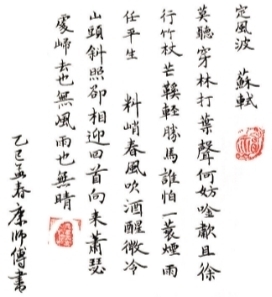 定風波 蘇軾
莫聽穿林打葉聲何妨吟歗且徐
行竹杖芒鞵輕勝馬誰怕一蓑煙雨
任平生 料峭春風吹酒醒微冷
山頭斜照卻相迎回首向來蕭瑟
處歸去也無風雨也無晴
乙巳孟春康師傅書